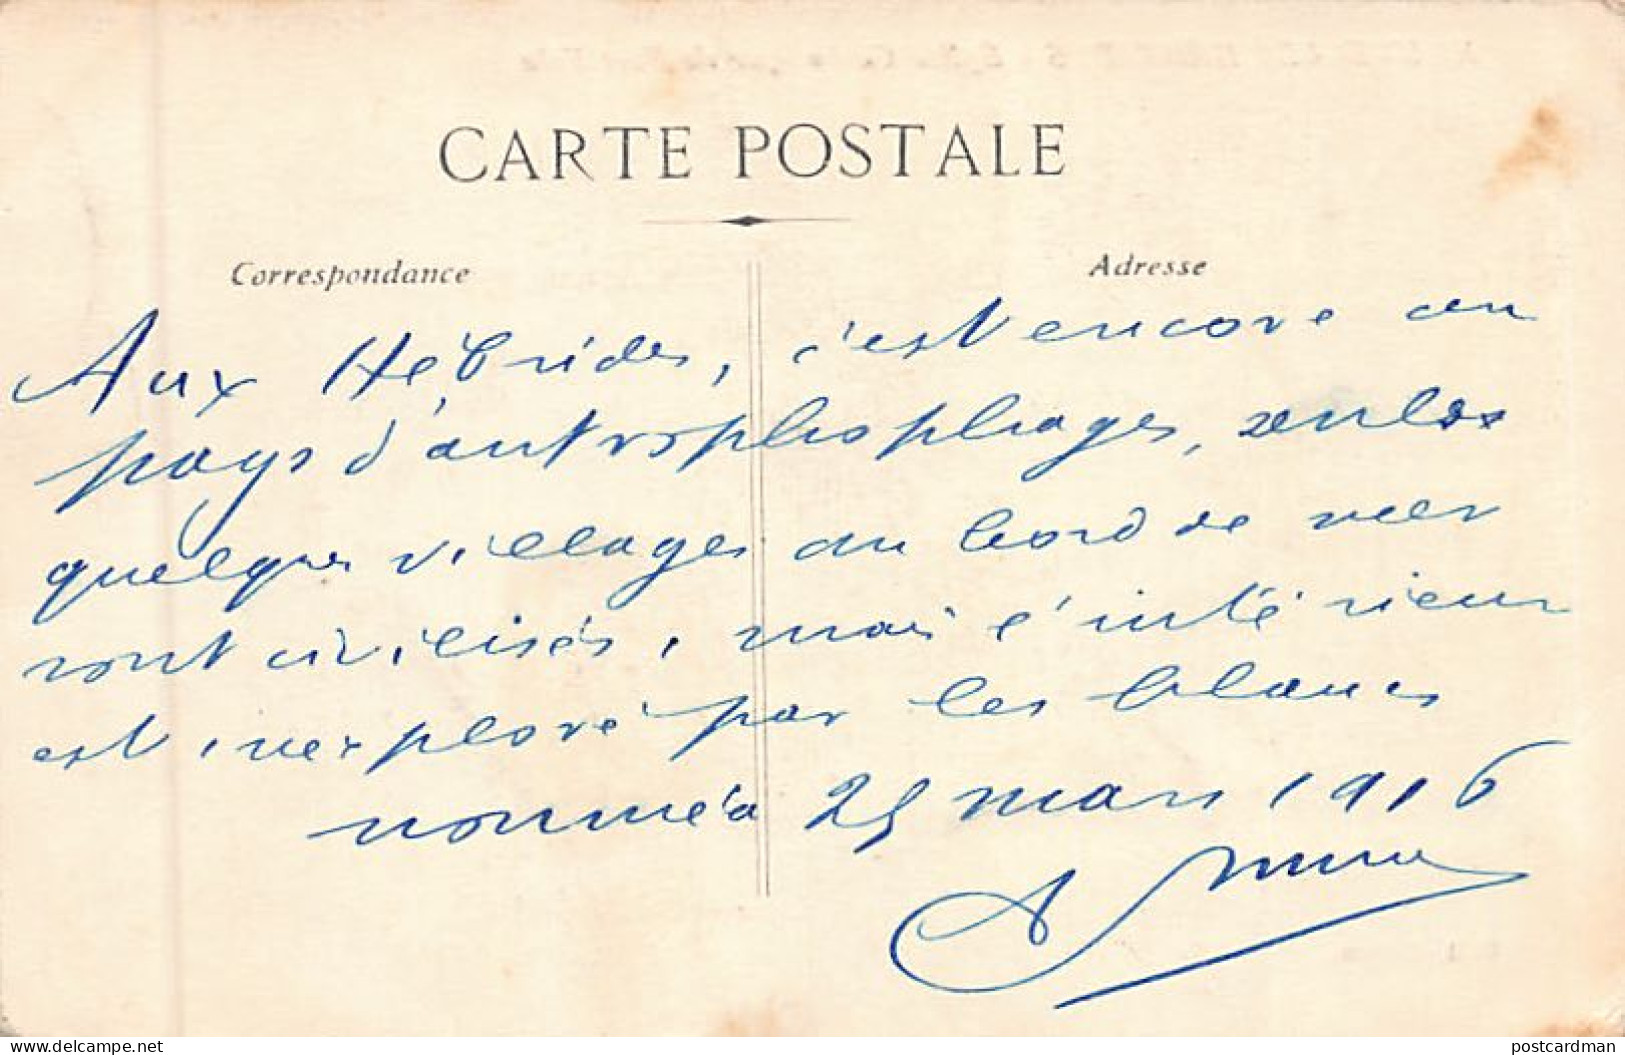 CARTE POSTALE
Correspondance
Adresse
Aux Hébrides, c'est encore un
pays d'antrophophages, seules
quelques villages au bord de mer
sont civilisés, mais l'intérieur
est inexploré par les blancs
nouméa 25 mars 1916
delcampe.net
postcardman